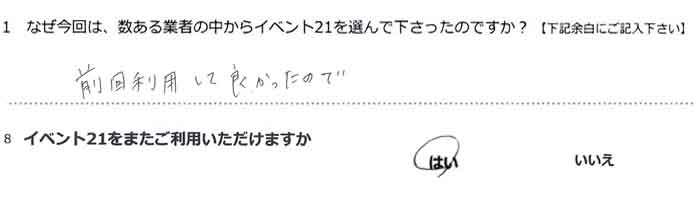 1 なぜ今回は、数ある業者の中からイベント21を選んで下さったのですか？【下記余白にご記入下さい】
前回利用して良かったので
8 イベント21をまたご利用いただけますか
はい いいえ